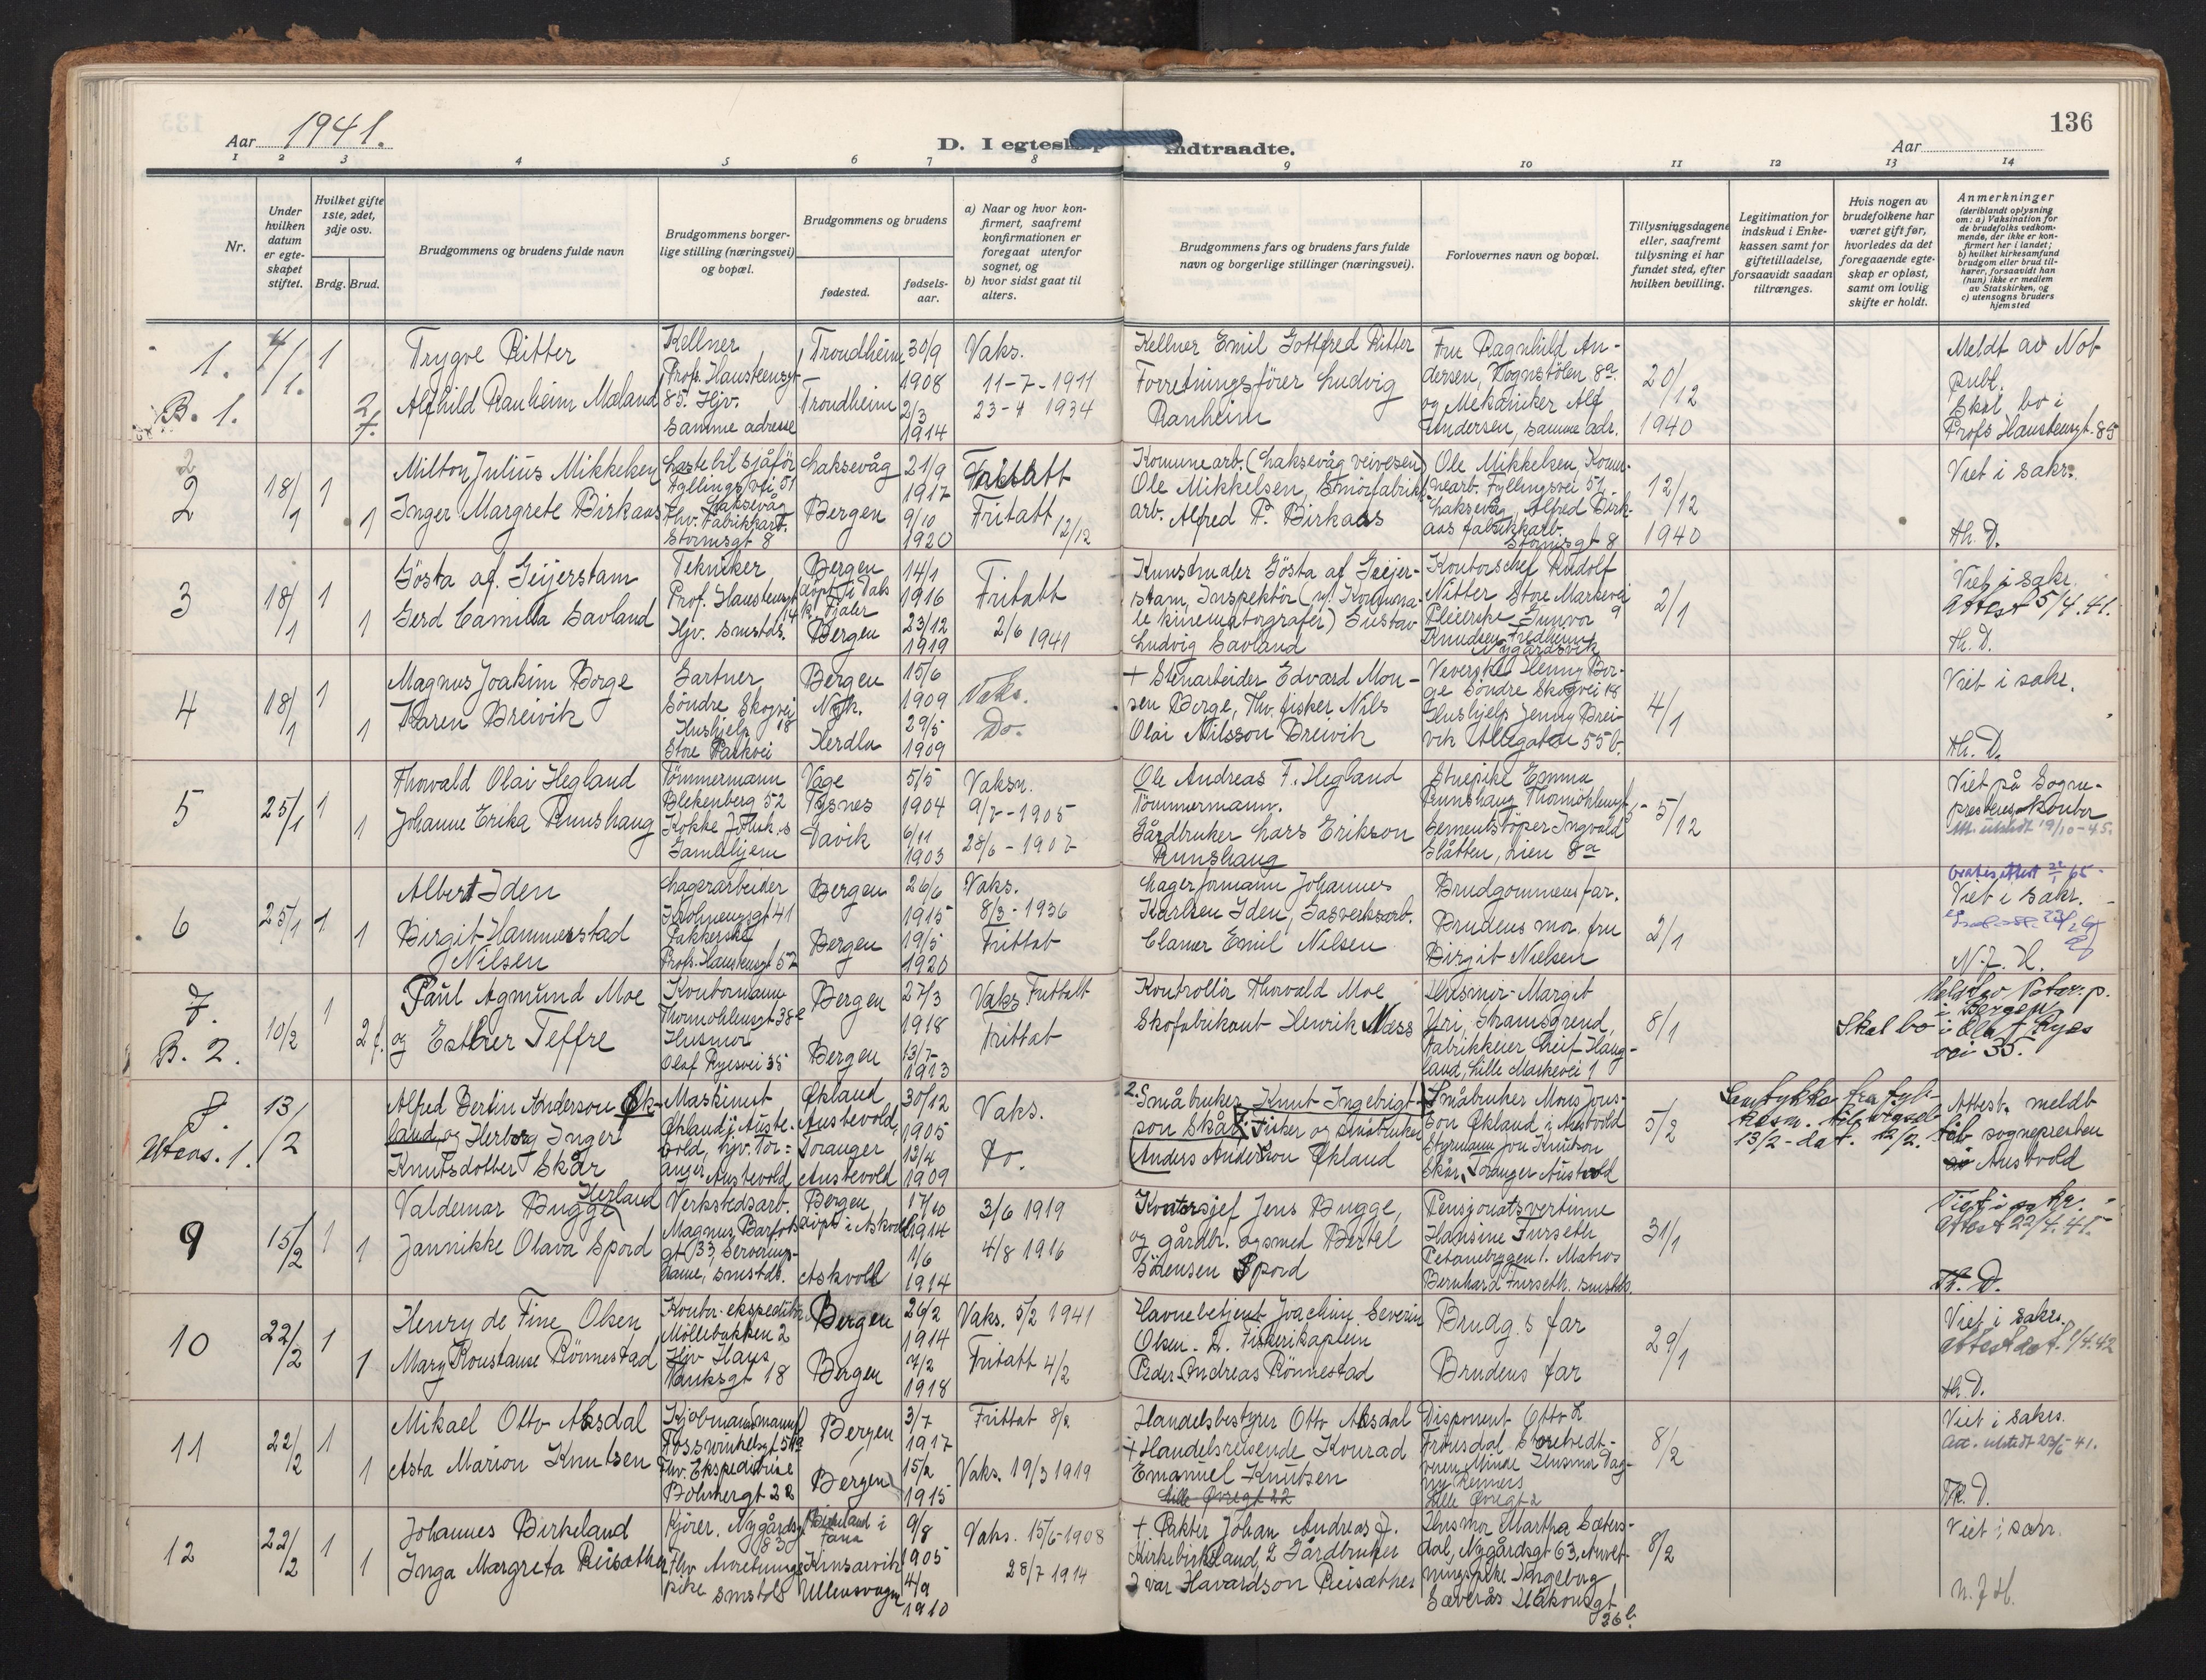 Aar 1941.
D. I egteskap indtraadte.
Aar
136
1 2 3 4 5 6 7 8 9 10 11 12 13 14
Nr.
Under hvilken datum er egteskapet stiftet.
Hvilket gifte 1ste, 2det, 3dje osv.
Brdg. Brud.
Brudgommens og brudens fulde navn
Brudgommens borgerlige stilling (næringsvei) og bopæl.
Brudgommens og brudens
fødested.
fødselsaar.
a) Naar og hvor konfirmert, saafremt konfirmationen er foregaat utenfor sognet, og
b) hvor sidst gaat til alters.
Brudgommens fars og brudens fars fulde navn og borgerlige stillinger (næringsvei).
Forlovernes navn og bopæl.
Tillysningsdagene eller, saafremt tillysning ei har fundet sted, efter hvilken bevilling.
Legitimation for indskud i Enkekassen samt for giftetilladelse, forsaavidt saadan tiltrænges.
Hvis nogen av brudefolkene har været gift før, hvorledes da det foregaaende egteskap er opløst, samt om lovlig skifte er holdt.
Anmerkninger
(deriblandt oplysning om: a) Vaksination for de brudefolks vedkommende, der ikke er konfirmert her i landet; b) hvilket kirkesamfund brudgom eller brud tilhører, forsaavidt han (hun) ikke er medlem av Statskirken, og c) utensogns bruders hjemsted
1.
B. 1.
1
2 f.
Trygve Ritter
Alfhild Ranheim Mæland
Kellner
Prof. Hansteensgt
85. Hjv.
samme adresse
Trondheim
Trondheim
30/9
1908
2/3
1914
Vaks.
11-7-1911
23-4 1934
Kellner Emil Gottfred Ritter
Forretningsfører Ludvig
Ranheim
Fru Ragnhild An-
dersen, Vognstølen 8a.
og Mekaniker Alf
Andersen, samme adr.
20/12
1940
Meldt av Not
publ.
Skal bo i
Profs Hansteensgt. 85
2
2
18/1
1
1
Milton Julius Mikkelsen
Inger Margrete Birkaas
Lastebilsjåfør
Fyllingsvei 51
Laksevåg
Fhv. Fabrikkarb.
Stormsgt 8
Laksevåg
Bergen
21/9
1917
9/10
1920
Fritatt 12/12
Komunearb. (Laksevåg veivesen)
Ole Mikkelsen, Smørfabrikk
arb. Alfred P. Birkaas
Ole Mikkelsen, Komu-
nearb. Fyllingsvei 51
Laksevåg, Alfred Birk-
aas fabrikkarb.
Stormsgt 8
12/12
1940
Viet i sakr.
Th. D.
3
18/1
1
1
Gösta af. Geijerstam
Gerd Camilla Savland
Tekniker
Prof. Hansteensgt
14
Hjv. smstds.
Bergen
døpt i Dals
k. Fjaler
Bergen
14/1
1916
23/12
1919
Fritatt
2/6 1941
Kunstmaler Gösta af Geijer-
stam, Inspektør (v/ Kommuna-
le kinematografer) Gustav
Ludvig Savland
Kontorschef Rudolf
Nitter Store Markevei
9
Pleierske Gunvor
Knudsen, Fredheim
Nygårdsvik
2/1
Viet i sakr.
Attest 5/4.41.
Th. D.
4
18/1
1
1
Magnus Joakim Borge
Karen Breivik
Gartner
Søndre Skogvei
18
Hushjelp
Store Parkvei
Bergen
Nyk.
Herdla
15/6
1909
29/5
1909
Vaks.
Do.
+ Stenarbeider Edvard Mon-
sen Borge, Fhv. fisker Nils
Olai Nilsson Breivik
Veverske Jenny Bor-
ge Søndre Skogvei 18
Hushjelp Jenny Brei-
vik Allegaten 55b.
4/1
Viet i sakr.
Th. D.
5
25/1
1
1
Thorvald Olai Hegland
Johanne Erika Runshaug
Tømmermann
Blekenberg 52
Kokke Joh.k.s
Gamlehjem
Våge
Tysnes
Davik
5/5
1904
6/11
1903
Vaksn.
9/7-1905
28/6-1907
Ole Andreas T. Hegland
Tømmermann.
Gårdbruker Lars Erikson
Runshaug
Stuepike Emma
Runshaug Thormöhlensgt
Sementstøper Ingvald
Slåtten, Lien 8a
5/12
Viet på Sogne-
prestens kontor
At. utstedt 19/10-45.
6
25/1
1
1
Albert Iden
Birgit Hammerstad
Nilsen
Lagerarbeider
Krohnengsgt 41
Pakkerske
Profs. Hansteensgt 57
Bergen
Bergen
26/6
1915
19/5
1920
Vaks.
8/3-1936
Frittat
Lagerformann Johannes
Karlsen Iden, Gasverksarb.
Clamer Emil Nilsen
Brudgommens far.
Brudens mor. fru
Birgit Nielsen
2/1
Viet i sakr.
N. J. H.
7.
B. 2.
10/2
1
2 f.
Paul Agmund Moe
og Esther Teffre
Kontormann
Thormøhlensgt 38e
Husmor
Olaf Ryesvei 35
Bergen
Bergen
27/3
1918
13/7
1913
Vaks Frittatt
Frittat
Kontrollør Thorvald Moe
Skofabrikant Henrik Næss
Husmor Margit
Yri, Skansgrend,
Fabrikkeier Leif Haug-
land, Lille Markevei 1
8/1
Meldt av Notar. p.
i Bergen
Skal bo i Olaf Ryes
vei 35.
8.
Utens. 1.
13/2
Alfred Bertin Anderson Øk-
land og Herborg Inger
Knutsdotter Skår
Maskinist
Økland i Auste-
vold, hjv. Tor-
anger Austevold
Økland
Austevold,
Toranger
Austevold
30/12
1905
13/4
1909
Vaks.
Do.
2. Småbruker Knut Ingebrigt-
son Skår, 1. Fisker og småbruker
Anders Anderson Økland
Småbruker Mons Jons-
son Økland i Austevold
Styrmann Jon Knutson
Skår, Toranger Austevold
5/2
Attest. meldt
til sognepresten
Austvold
9
15/2
1
1
Valdemar Bugge Herland
Jannikke Olava Spord
Verkstedsarb.
Magnus Barfots
gt 33, Serverings-
dame, smstds.
Bergen
døpt i Askvoll
Askvoll
17/10
1914
1/6
1914
3/6 1919
4/8 1916
Kontorsjef Jens Bugge,
og gårdbr. og smed Bertel
Sørensen Spord
Pensjonatsvertinne
Hansine Furseth
Matros
Bernhard Furseth. smstds.
31/1
Viet i sakr.
Attest 22/4.41.
Th. D.
10
22/2
1
1
Henry de Fine Olsen
Mary Konstanse Rønnestad
Kontor-ekspeditør
Møllebakken 2
Hjv Hans
Hauksgt 18
Bergen
Bergen
26/2
1914
7/2
1918
Vaks. 5/2 1941
Fritatt 4/2
Havnebetjent Joachim Severin
Olsen. 2. Fiskerikaptein
Peder Andreas Rønnestad
Brudg.s far
Brudens far
29/1
Viet i sakr.
Th. D.
11
22/2
1
1
Mikael Otto Aksdal
Asta Marion Knutsen
Kjøbmann
Fosswinkelsgt 51a
Fhv. Ekspeditrise
Bøhmergt 22
Bergen
Bergen
3/7
1917
15/2
1915
Frittat 8/2
Vaks. 19/3 1919
Handelsbestyrer Otto Aksdal
+ Handelsreisende Konrad
Emanuel Knutsen
Lille Øvregt 22
Disponent Otto L
Fronsdal Storetvedt-
veien Minde Husmor Dag-
ny Renners
Lille Øvregt 2
8/2
Viet i sakr.
Att. utstedt 23/5-41.
Th. D.
12
22/2
1
1
Johannes Birkeland
Inga Margreta Reisæther
Kjører. Nygårdsgt
83
Fhv Anretnings
pike smstds
Birkeland i
Fana
Kinsarvik
Ullensvang
9/8
1905
4/9
1910
Vaks. 15/6-1908
28/7 1914
+ Pakter Johan Andreas J.
Kirkebirkeland, 2 Gårdbruker
Ivar Havardson Reisæther
Husmor Martha Sæters-
dal, Nygårdsgt 63, Anret-
ningspike Ingeborg
Sæverås Håkonsgt
26b.
8/2
Viet i sakr.
N. J. H.